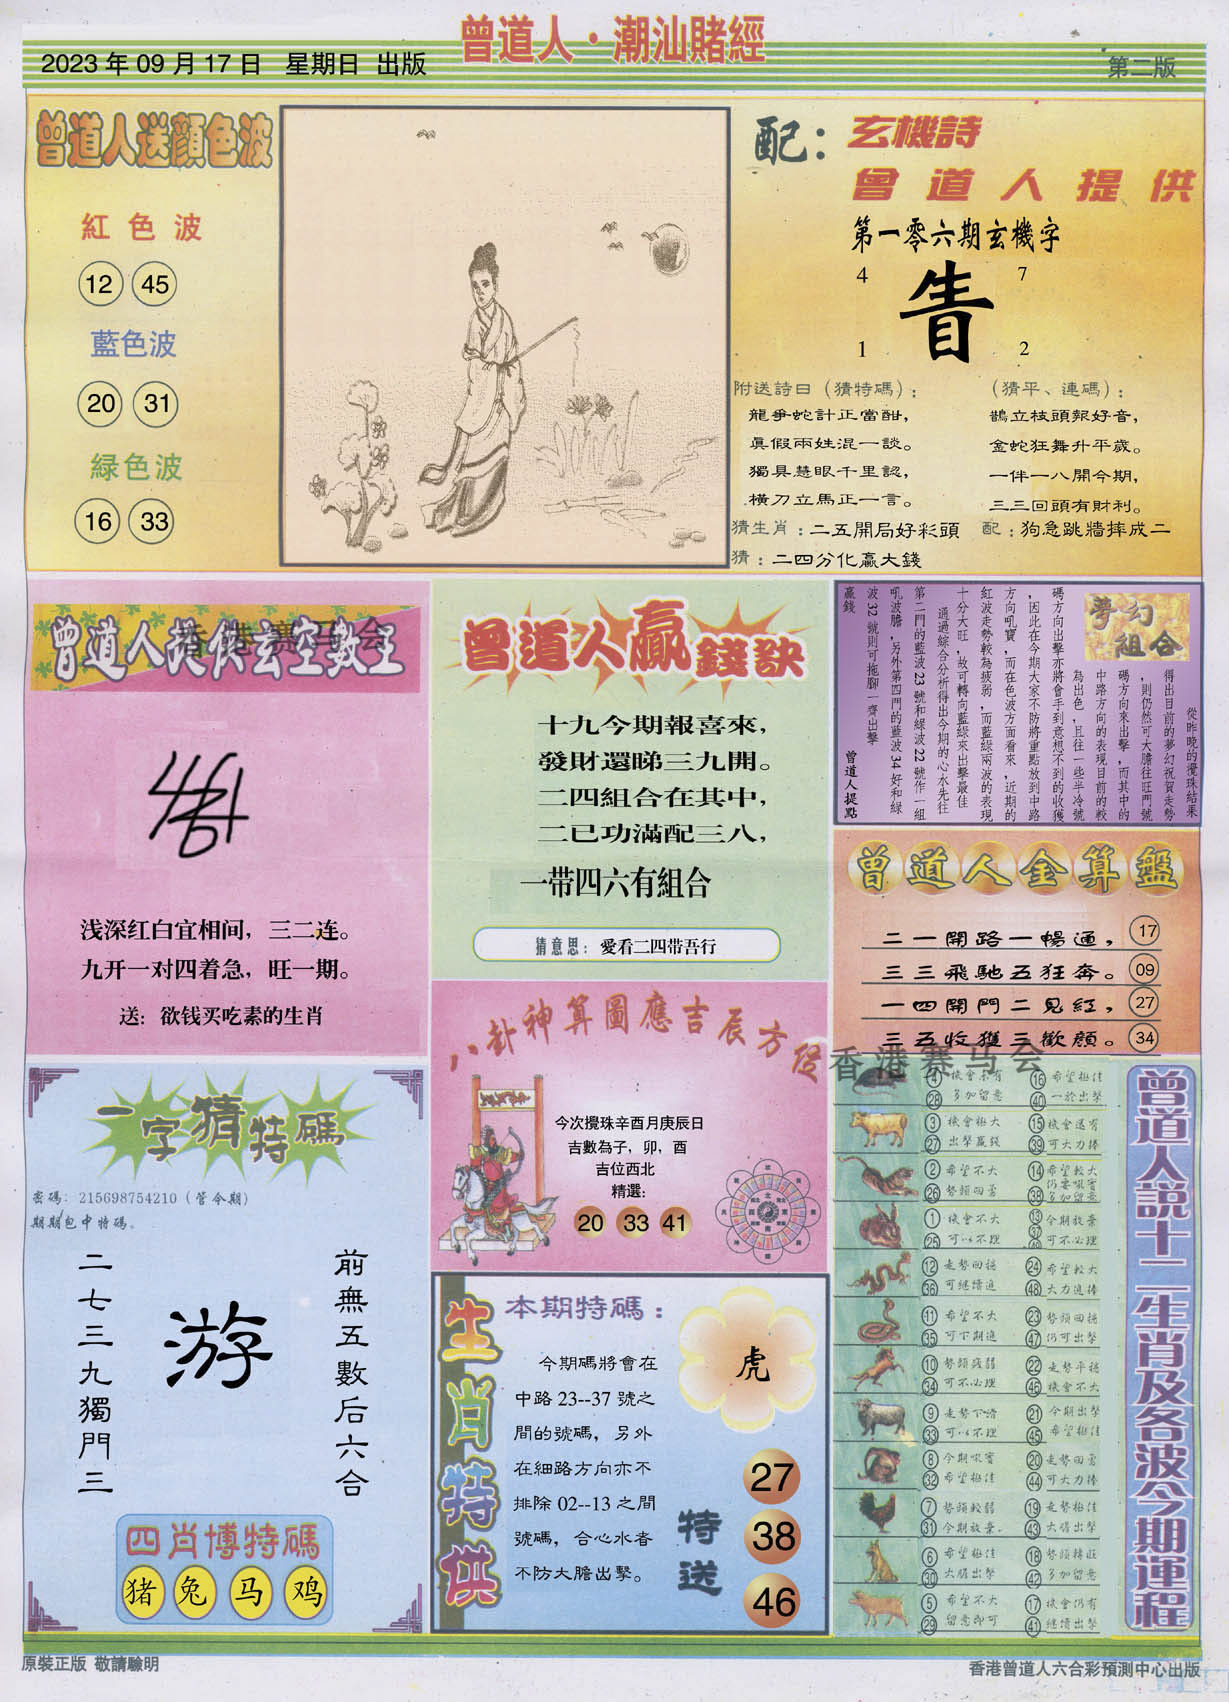 曾道人·潮汕賭經
2023年09月17日 星期日 出版
第二版
曾道人送顏色波
紅色波
12 45
藍色波
20 31
緑色波
16 33
配：玄機詩
曾道人提供
第一零六期玄機字
4 7
1 2
附送詩日（猜特碼）：
龍爭蛇計正當酣，
真假兩姓混一談。
獨具慧眼千里認，
橫刀立馬正一言。
（猜平、連碼）：
鵲立枝頭報好音，
金蛇狂舞升平歲。
一伴一八開今期，
三三回頭有財利。
猜生肖：二五開局好彩頭
配：狗急跳牆摔成二
猜：二四分化贏大錢
曾道人提供玄空數王
香港赛马会
浅深红白宜相间，三二连。
九开一对四着急，旺一期。
送：欲钱买吃素的生肖
曾道人贏錢訣
十九今期報喜來，
發財還睇三九開。
二四組合在其中，
二已功滿配三八，
一带四六有組合
猜意思：愛看二四带吾行
夢幻組合
從昨晚的攪珠結果
得出目前的夢幻祝賀走勢
，則仍然可大膽往旺門號
碼方向來出擊，而其中的
中路方向的表現目前的較
為出色，且往一些半冷號
碼方向出擊亦將會手到意想不到的收獲
，因此在今期大家不防將重點放到中路
方向吼寶，而在色波方面看來，近期的
紅波走勢較為疲弱，而藍綠兩波的表現
十分大旺，故可轉向藍綠來出擊最佳
通過綜合分析得出今期的心水先往
第二門的藍波23號和綠波22號作一組
吼波膽，另外第四門的藍波34好和綠
波32號則可拖腳一齊出擊
贏錢
曾道人提點
曾道人金算盤
二一開路一暢通， 17
三三飛馳五狂奔。 09
一四開門二見紅， 27
三五收獲三歡顏。 34
香港赛马会
八卦神算圖應吉辰方位
今次攪珠辛酉月庚辰日
吉數為子，卯，酉
吉位西北
精選：
20 33 41
一字猜特碼
密碼：215698754210（管令期）
期期包中特碼。
前無五數后六合
游
二七三九獨門三
四肖博特碼
猪 兔 马 鸡
生肖特供
本期特碼：
今期碼將會在
中路23--37號之
間的號碼，另外
在細路方向亦不
排除02--13之間
號碼，合心水者
不防大膽出擊。
虎
特送
27
38
46
曾道人説十二生肖及各波今期運程
4 28 機會未有 多加留意
16 40 希望極佳 一於出擊
3 27 機會極大 出擊贏錢
15 39 機會還有 可大力捧
2 26 希望不大 勢頭回勇
14 38 希望較大 仍要吼實 多加留意
1 25 機會不大 可以不理
13 37 49 今期放棄 可不必理
12 36 走勢回穩 可繼續追
24 48 希望較大 大力追捧
11 35 希望不大 可下期追
23 47 勢頭回穩 仍可出擊
10 34 勢頭疲弱 可不必理
22 46 走勢平穩 機會不大
9 33 走勢下滑 可以不理
21 45 今期出擊 希望極佳
8 32 今期吼寶 希望極佳
20 44 走勢回勇 可大力捧
7 31 勢頭較弱 今期放棄.
19 43 走勢極佳 大膽出擊
6 30 希望極佳 大膽出擊
18 42 勢頭轉旺 多加留意
5 29 希望不大 留意即可
17 41 機會仍有 繼續出擊
原裝正版 敬請驗明
香港曾道人六合彩預測中心出版